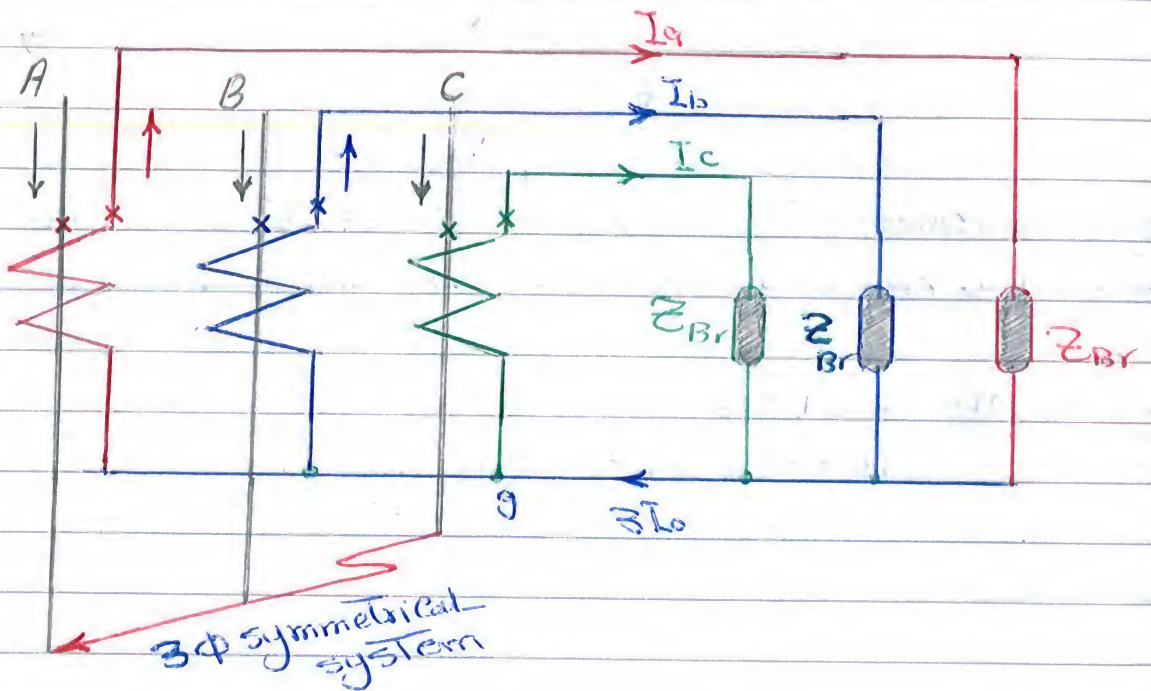 Ia
A
B
C
Ib
Ic
Z Br
Z Br
Z Br
g
3Io
3Φ symmetrical
system